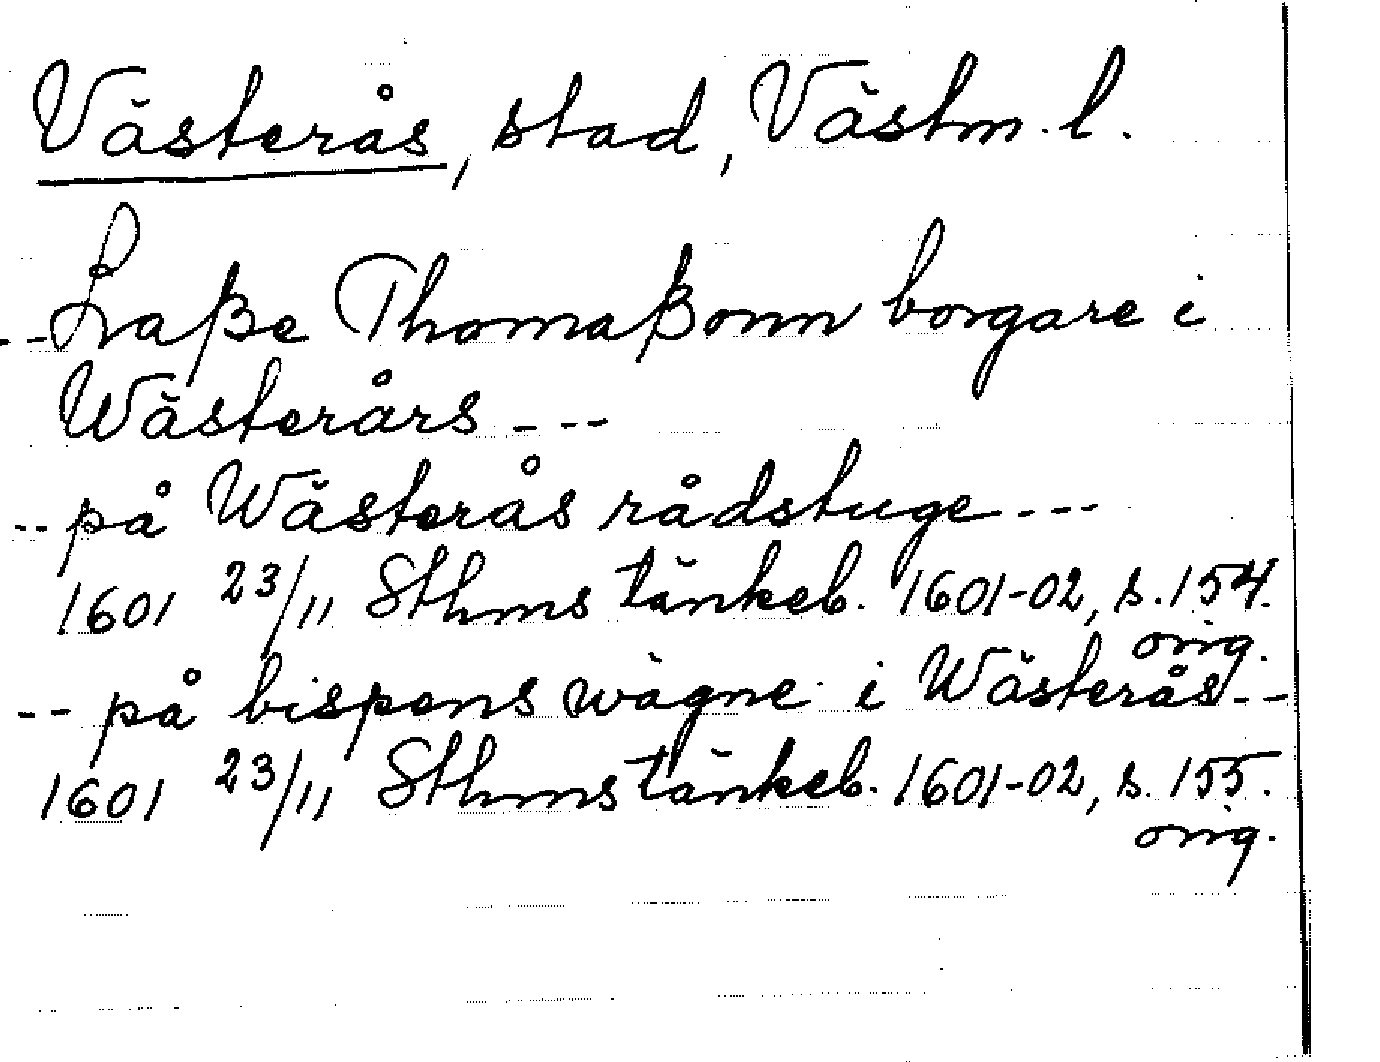 Västerås, stad, Västm. l.
-- Laße Thomaßonn borgare i
Wästerårs ---
-- på Wästerås rådstuge ---
1601 23/11 Sthms tänkeb. 1601-02, s. 154.
orig.
-- på bispens wägne i Wästerås --
1601 23/11 Sthms tänkeb. 1601-02, s. 155.
orig.